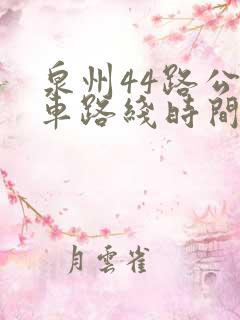 泉州44路公
車路綫時間
月雲雀